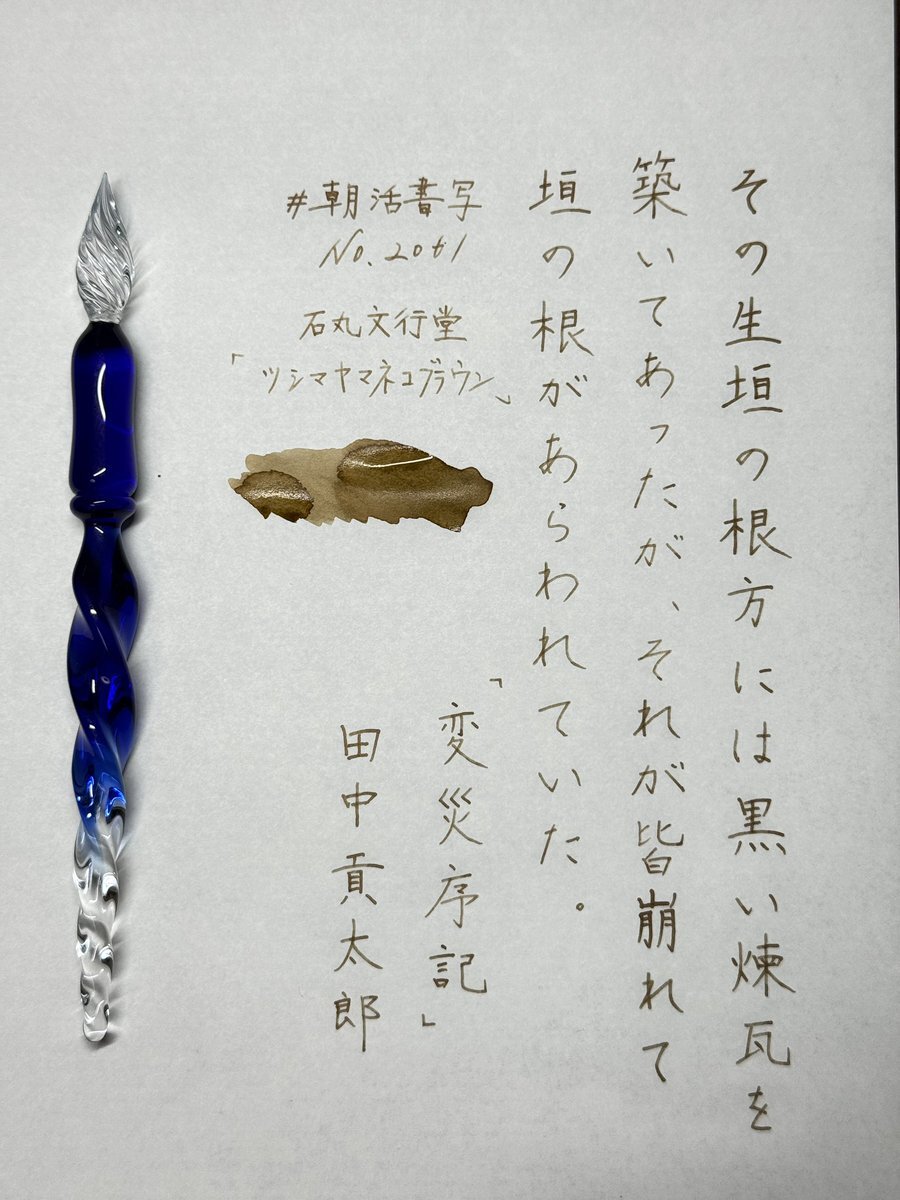 その生垣の根方には黒い煉瓦を
築いてあったが、それが皆崩れて
垣の根があらわれていた。
「変災序記」
田中貢太郎
#朝活書写
No.2061
石丸文行堂
「ツシマヤマネコブラウン」